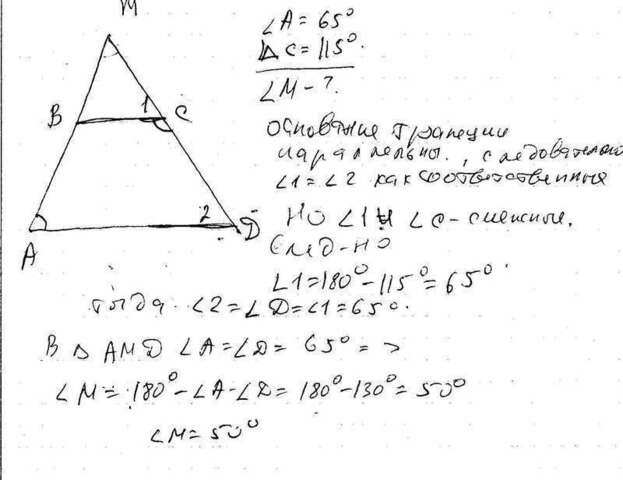 M
∠A = 65°
∠C = 115°.
∠M - ?
B 1 C
основание трапеции
параллельны., следовательно
∠1 = ∠2 как соответственные
2 D
A
НО ∠1 и ∠C - смежные.
След-но
∠1 = 180° - 115° = 65°
тогда ∠2 = ∠D = ∠1 = 65°.
В △ AMD ∠A = ∠D = 65° =>
∠M = 180° - ∠A - ∠D = 180° - 130° = 50°
∠M = 50°